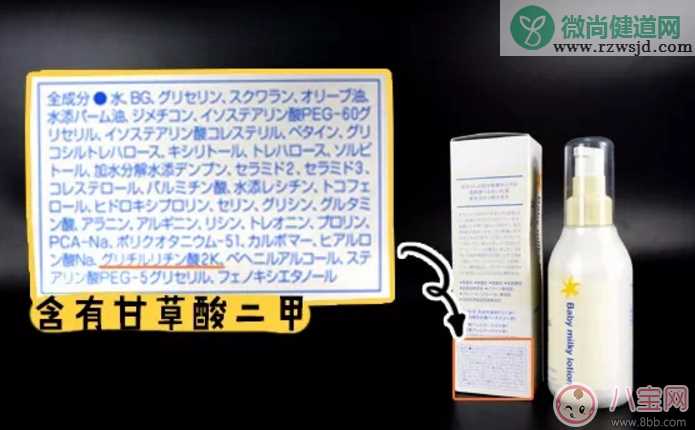 微尚健道网
www.rzwsjd.com
全成分●水、BG、グリセリン、スクワラン、オリーブ油、
水添パーム油、ジメチコン、イソステアリン酸PEG-60グ
リセリル、イソステアリン酸コレステリル、ベタイン、グリ
コシルトレハロース、キシリトール、トレハロース、ソルビ
トール、加水分解水添デンプン、セラミド2、セラミド3、
コレステロール、パルミチン酸、水添レシチン、トコフェ
ロール、ヒドロキシプロリン、セリン、グリシン、グルタミ
ン酸、アラニン、アルギニン、リシン、トレオニン、プロリン、
PCA-Na、ポリクオタニウム-51、カルボマー、ヒアルロ
ン酸Na、グリチルリチン酸2K、ベヘニルアルコール、ステ
アリン酸PEG-5グリセリル、フェノキシエタノール
含有甘草酸二甲
Baby milky lotion
八宝网
www.8bb.com